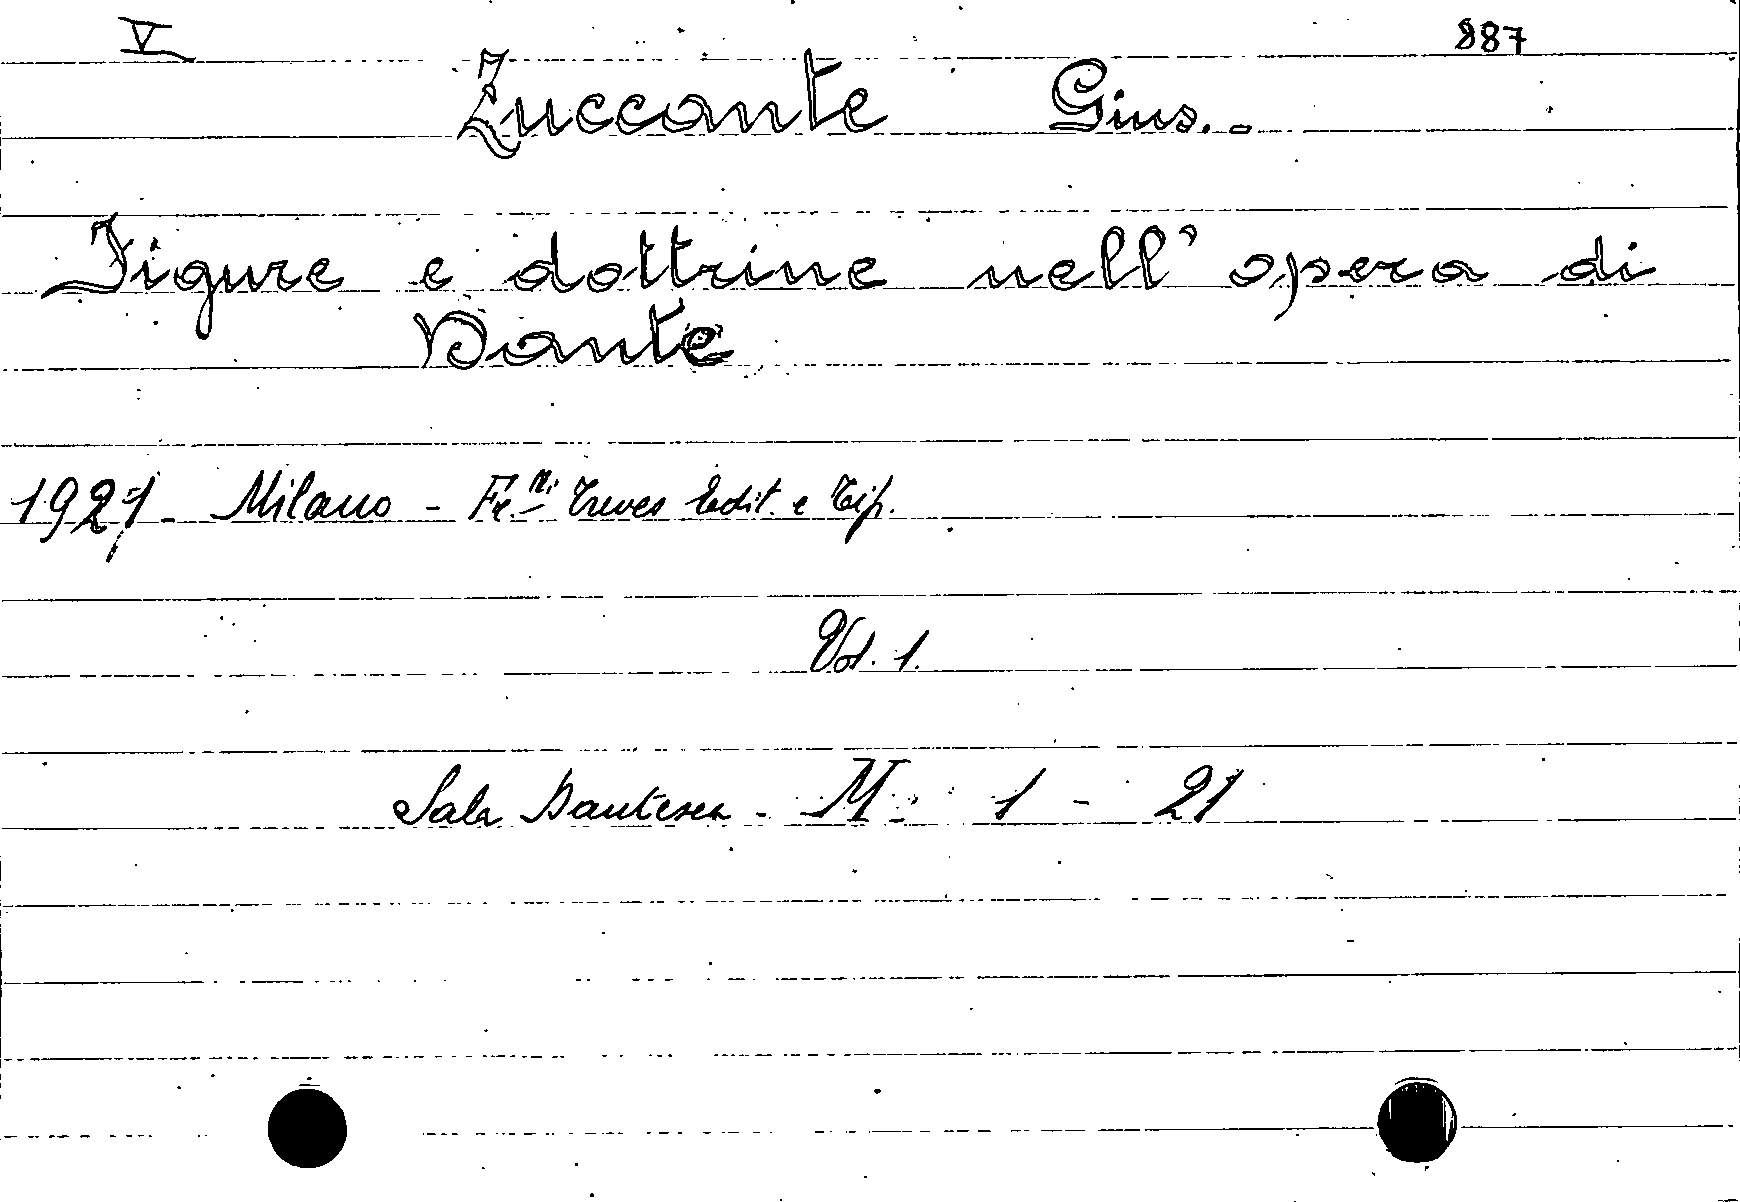 V 887
Zuccante Gius. -
Figure e dottrine nell' opera di
Dante
1921 - Milano - Fr.lli Treves Edit. e Tip.
Vol. 1.
Sala Dantesca - M: 1 - 21